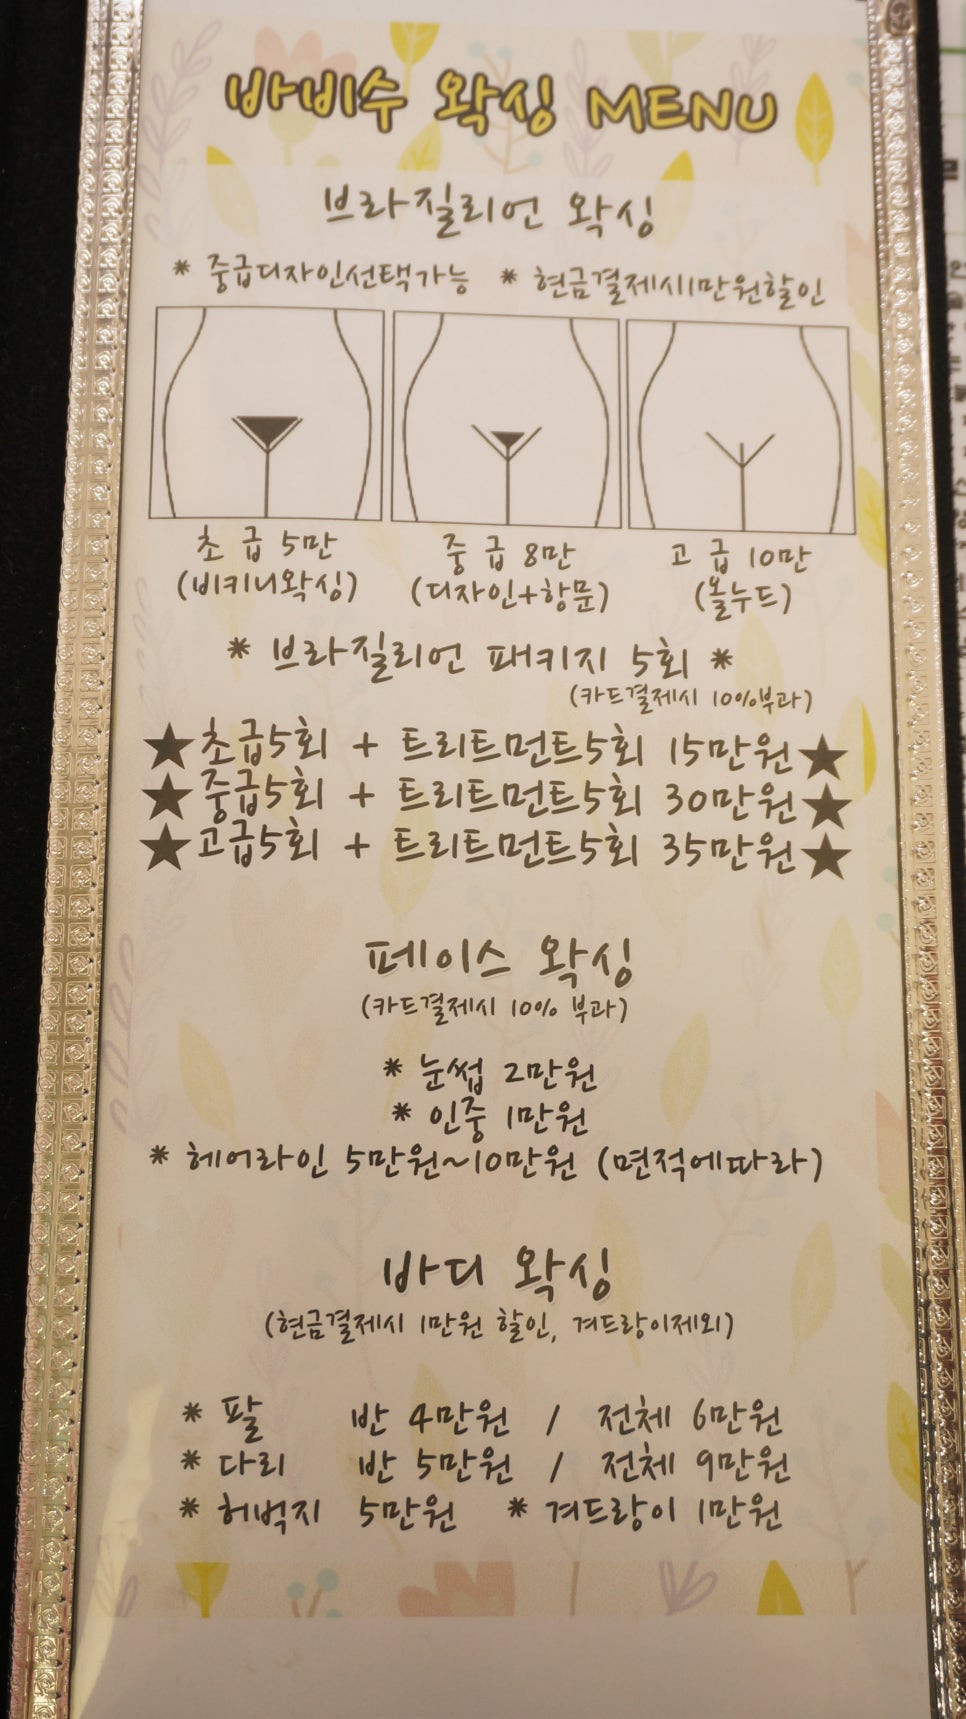 바비수 왁싱 MENU
브라질리언 왁싱
* 중급디자인선택가능 * 현금결제시1만원할인
초급 5만 중급 8만 고급 10만
(비키니왁싱) (디자인+항문) (올누드)
* 브라질리언 패키지 5회 *
(카드결제시 10%부과)
★초급5회 + 트리트먼트5회 15만원★
★중급5회 + 트리트먼트5회 30만원★
★고급5회 + 트리트먼트5회 35만원★
페이스 왁싱
(카드결제시 10% 부과)
* 눈썹 2만원
* 인중 1만원
* 헤어라인 5만원~10만원 (면적에따라)
바디 왁싱
(현금결제시 1만원 할인, 겨드랑이제외)
* 팔 반 4만원 / 전체 6만원
* 다리 반 5만원 / 전체 9만원
* 허벅지 5만원 * 겨드랑이 1만원